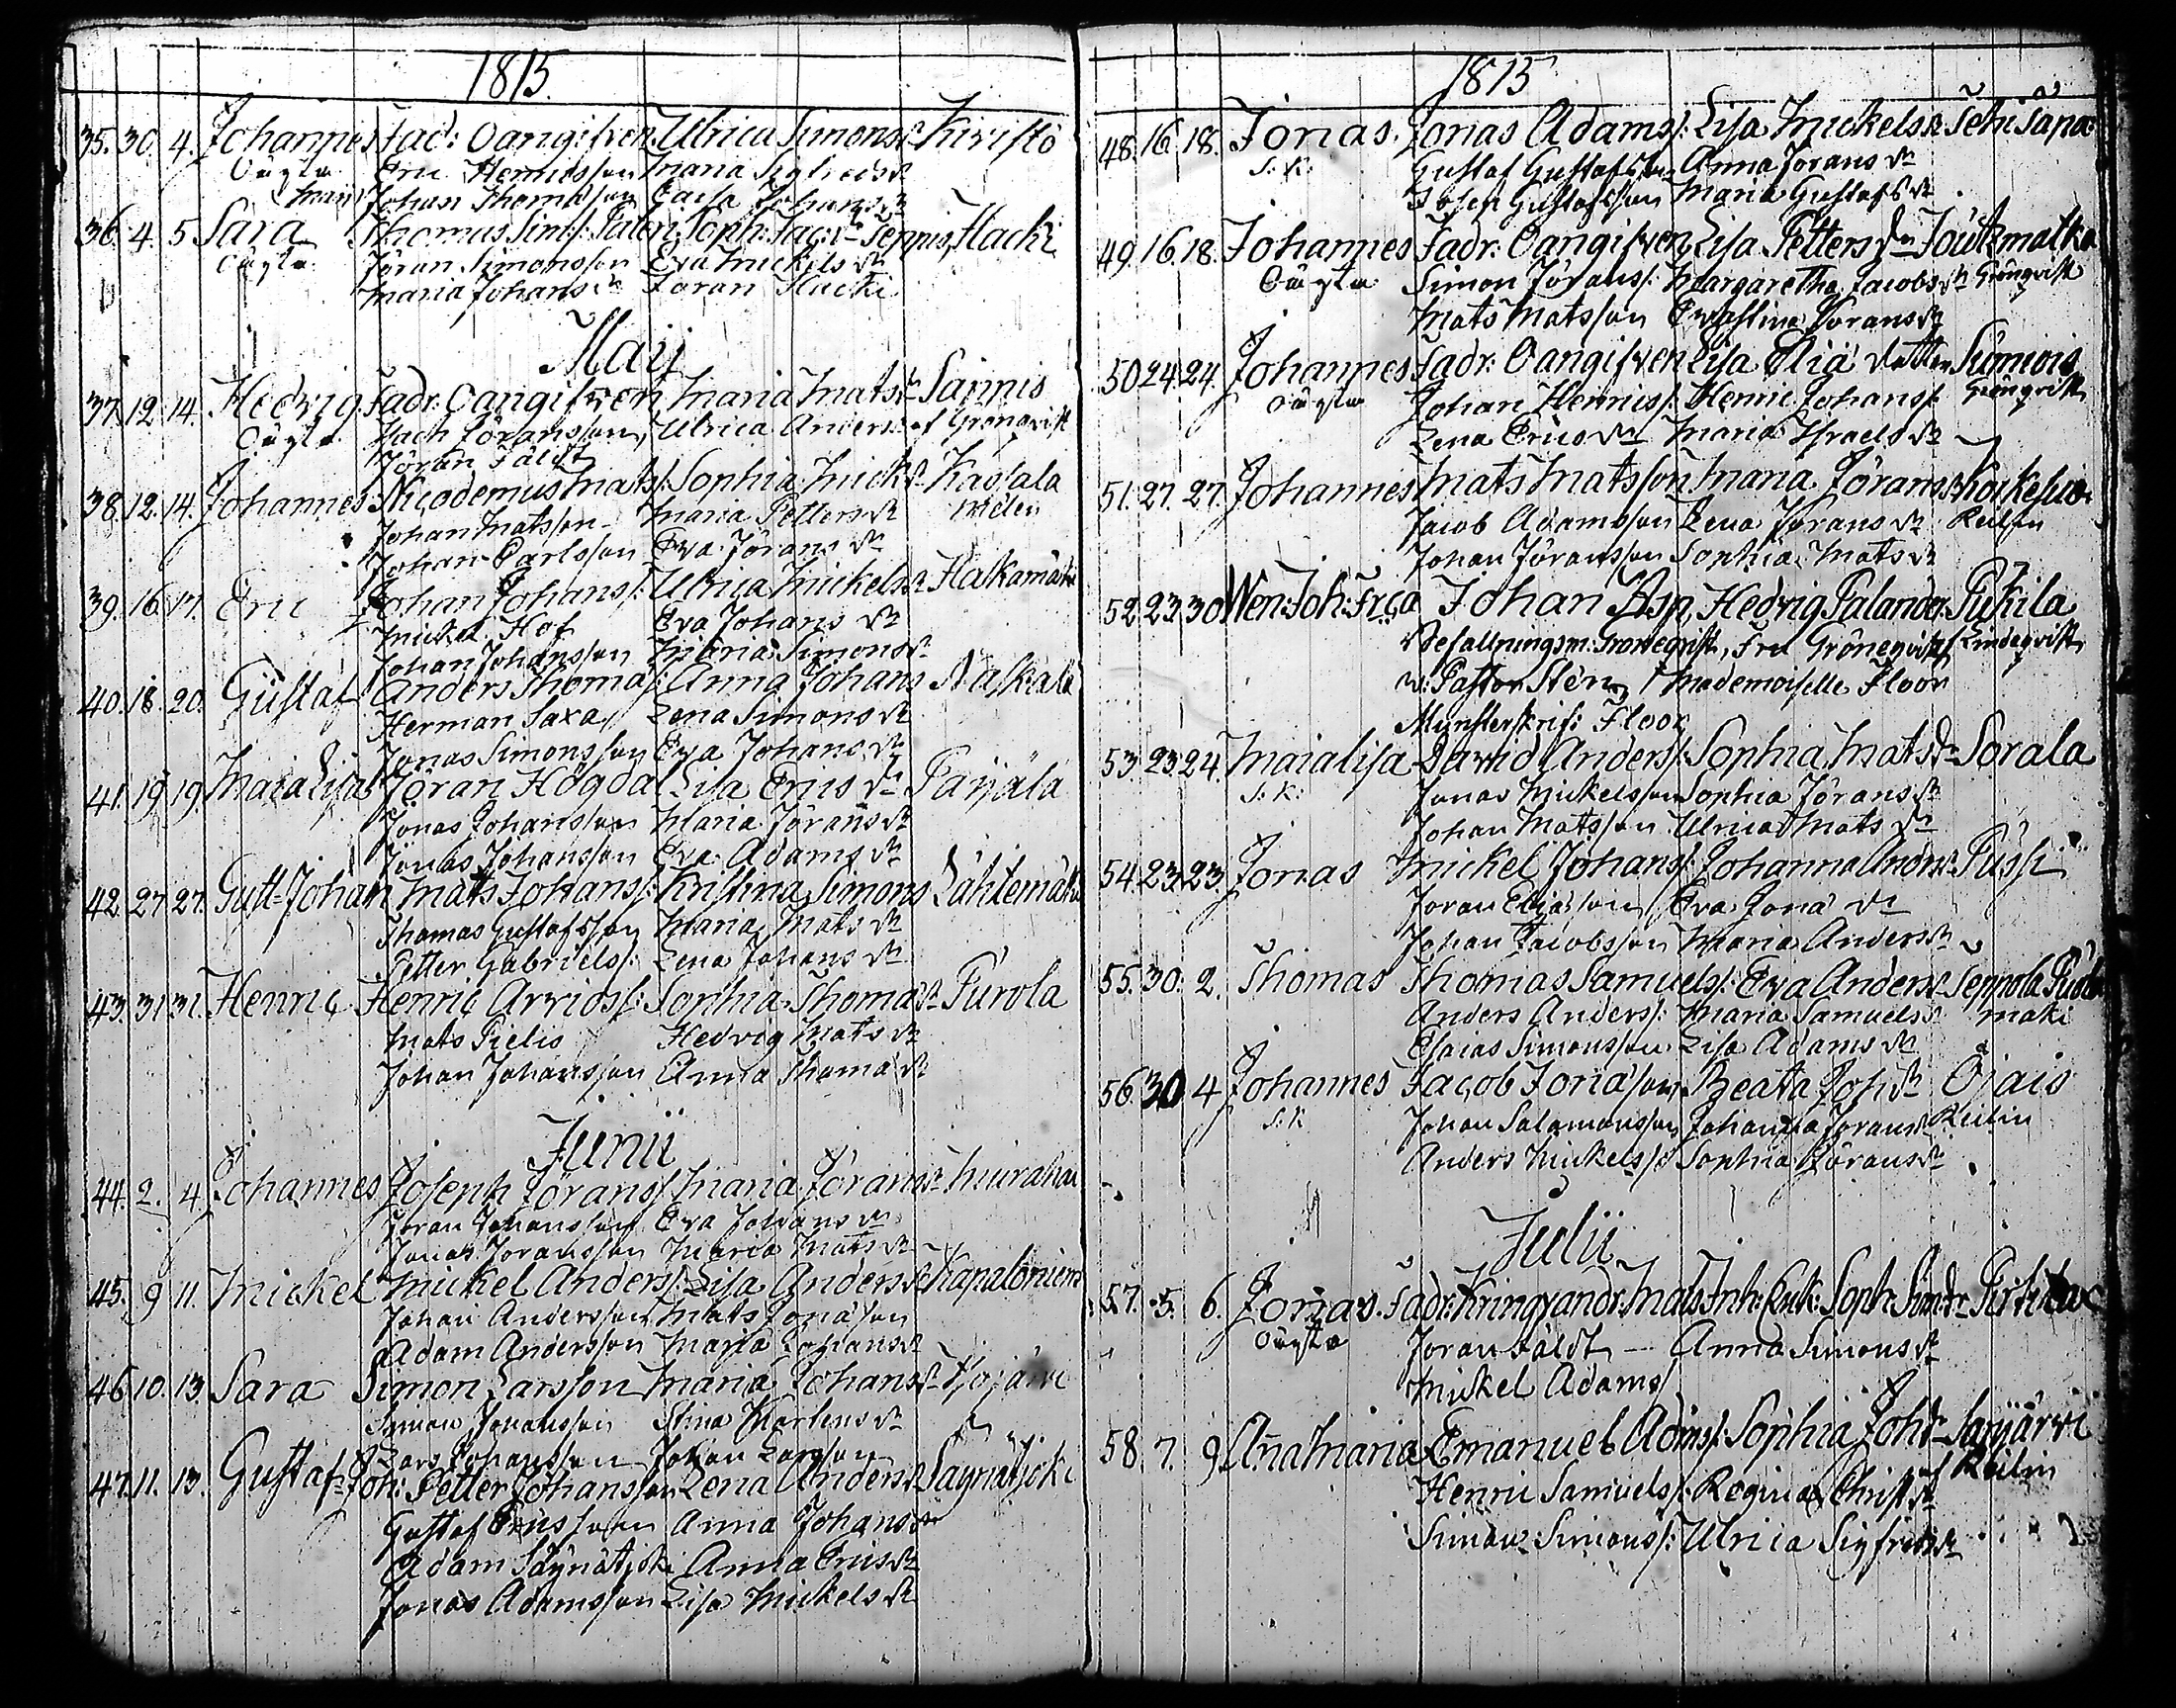 1815.
35. 30. 4. Johannes Fad: Oangifven. Ulrica Simonsdr Kiristö
Oägta Eric Henricsson Maria Sigfredsdr
Maij Johan Thomasson Caisa Johansdr
36. 4. 5 Sara Thomas Sims: Soph: Jac: dr Seppus, Hacki
Oägta Jöran Simonsson Eva Mickelsdr
Maria Johansdr Jöran Hacki
Maij
37. 12. 14. Hedvig Fadr: Oangifven Maria Matsdr Sarmis
Oägta Zach Göransson, Ulrica Anders: af Grönqvist
Jöran Fäldt
38. 12. 14. Johannes Nicodemus Mats: Sophia Mickdr Kassala
Johan Matsson Maria Pettersdr
Johan Carlsson Eva Jöransdr
39. 16. 17. Eric Johan Johans: Ulrica Mickelsdr Halkamäki
Mickel Hof Eva Johansdr
Johan Johansson Maria Simonsdr
40. 18. 20. Gustaf Anders Thomas: Anna Johans Naskala
Herman Saxa, Lena Simonsdr
Jonas Simonsson Eva Johansdr
41. 19. 19. Maja Lisa Jöran Högdal Lisa Ericsdr Pärjälä
Jonas Johansson Maria Jöransdr
Jonas Johansson Eva Adamsdr
42. 27. 27. Gust: Johan Mats Johans: Kristina Simons Lähtemäki
Thomas Gustafsson Maria Matsdr
Petter Gabriels: Lena Johansdr
43. 31. 31. Henric Henric Arvids: Sophia Thomasdr Purola
Mats Pielis Hedvig Matsdr
Johan Johansson Anna Thomasdr
Junii
44. 2. 4. Johannes Joseph Jörans: Maria Jöransdr
Jöran Johansson Eva Johansdr
Jonas Joransson Maria Matsdr
45. 9 11. Mickel Mickel Anders: Lisa Andersdr Kapaloniemi
Johan Andersson Mats Jonasson
Adam Andersson Maria Johansdr
46. 10. 13. Sara Simon Larsson Maria Johansdr
Simon Johansson Stina Mårtensdr
Lars Johansson Johan Larsson
47. 11. 13. Gustaf Joh: Petter Johansson Lena Andersdr Säynätjoki
Gustaf Ericsson Anna Johansdr
Adam Säynätjoki Anna Ericsdr
Jonas Adamsson Lisa Mickelsdr
1815
48. 16. 18. Jonas. Jonas Adams: Lisa Mickelsdr
S: K: Gustaf Gustafsson Anna Joransdr
Josep Gustafsson Maria Gustafsdr
49. 16. 18. Johannes Fadr: Oangifven, Lisa Pettersdr Joutzmatka
Oägta Simon Jörans: Margaretha Jacobsdr Grönqvist
Mats Matsson Jöransdr
50 24. 24. Johannes Fadr: Oangifven Lisa Elia dotter
Oägta Johan Henrics: Henric Johans: Grönqvist
Lena Ericsdr Maria Israelsdr
51. 27. 27. Johannes Mats Matsson Maria Jöransdr Korkesuo
Jacob Adamsson Lena Joransdr Reilin
Johan Jöransson Sophia Matsdr
52 23. 30 Wen: Joh: Fr:ca Johan Asp, Hedvig Palander, Pukila
Befallningsm: Gronegvist, Fru Grönegvist Lindeqvist
v: Pastor Sten, Mademoiselle Floor
Munsterskrif: Floor
53. 23. 24. Maialisa David Anders: Sophia Matsdr Sorala
S: K: Jonas Mickelsson Sophia Jöransdr
Johan Matsson Ulrica Matsdr
54. 23. 23. Jonas Mickel Johans: Johanna Anders: Pussi
Joran Eliasson, Eva Jonadr
Johan Jacobsson Maria Andersdr
55. 30. 2. Thomas Thomas Samuels: Eva Andersdr
Anders Anders: Maria Samuelsdr mäki
Esaias Simonsson Lisa Adamsdr
56. 30 4 Johannes Jacob Jonasson Beata Johdr Ojais
S: K Johan Salomonsson Johanna Joransdr Reilin
Anders Mickels: Sophia Jöransdr
Julii
57. 5. 6. Jonas. Fadr: Mats Soph:
Oägta Joran Fäldt, Anna Simonsdr
Mickel Adams:
58. 7. 9 Annamaria Emanuel Adams: Sophia Johdr Särjjärvi
Henric Samuels: Regina Christdr af Reilin
Simon Simons: Ulrica Sigfridsdr